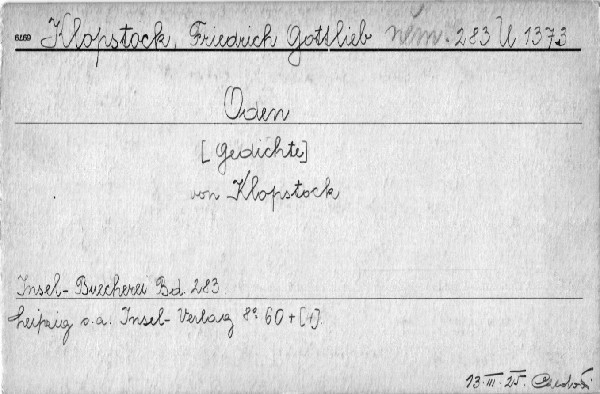 Klopstock, Friedrich Gottlieb něm. 283 U 1373
Oden
[Gedichte]
von Klopstock
Insel-Buecherei Bd. 283
Leipzig o.a. Insel-Verlag 8° 60+[4].
13.III.25.